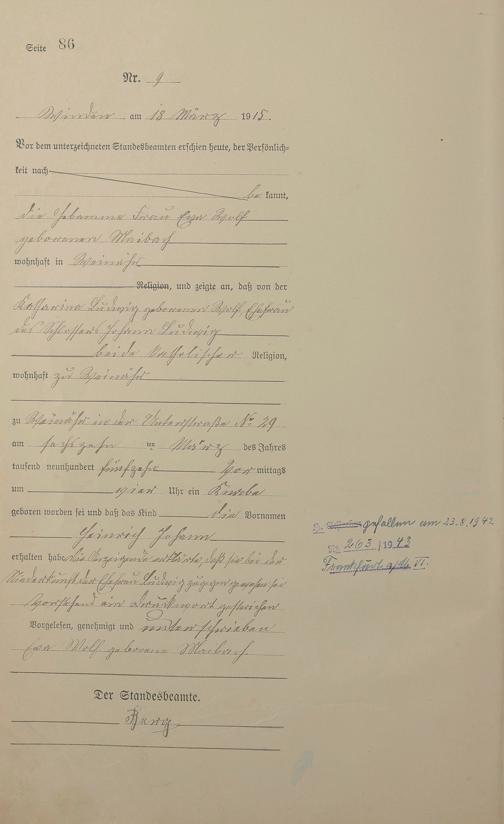 Seite 86
Nr. 9
Winden am 18 März 1915.
Vor dem unterzeichneten Standesbeamten erschien heute, der Persönlich-
keit nach
be kannt,
die Hebamme Frau Eva Wolf
geborenen Maibach
wohnhaft in Weinähr
Religion, und zeigte an, daß von der
Katharina Ludwig geborenen Wolf, Ehefrau
des Schlossers Johann Ludwig
beide katholischer Religion,
wohnhaft zu Weinähr
zu Weinähr in der Unterstraße No 29
am sechszehn ten März des Jahres
tausend neunhundert fünfzehn Vor mittags
um vier Uhr ein Knabe
geboren worden sei und daß das Kind die Vornamen
Heinrich Johann
erhalten habe. Die Anzeigende erklärte, daß sie bei der
Niederkunft der Ehefrau Ludwig zugegen gewesen sei
Vorstehend ein Druckwort gestrichen
Vorgelesen, genehmigt und unterschrieben
Eva Wolf geborene Maibach
Der Standesbeamte.
gefallen am 23.8.1942
263/1943
Frankfurt a/M VI.